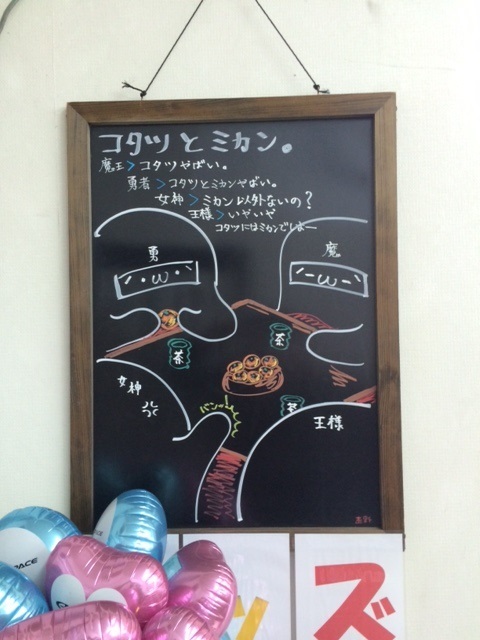 コタツとミカン。
魔王>コタツやばい。
勇者>コタツとミカンやばい。
女神>ミカン以外ないの?
王様>いやいや
コタツにはミカンでしょー
勇
・ω・
魔
茶
茶
女神
バンッ
茶
王様
PACE
ズ